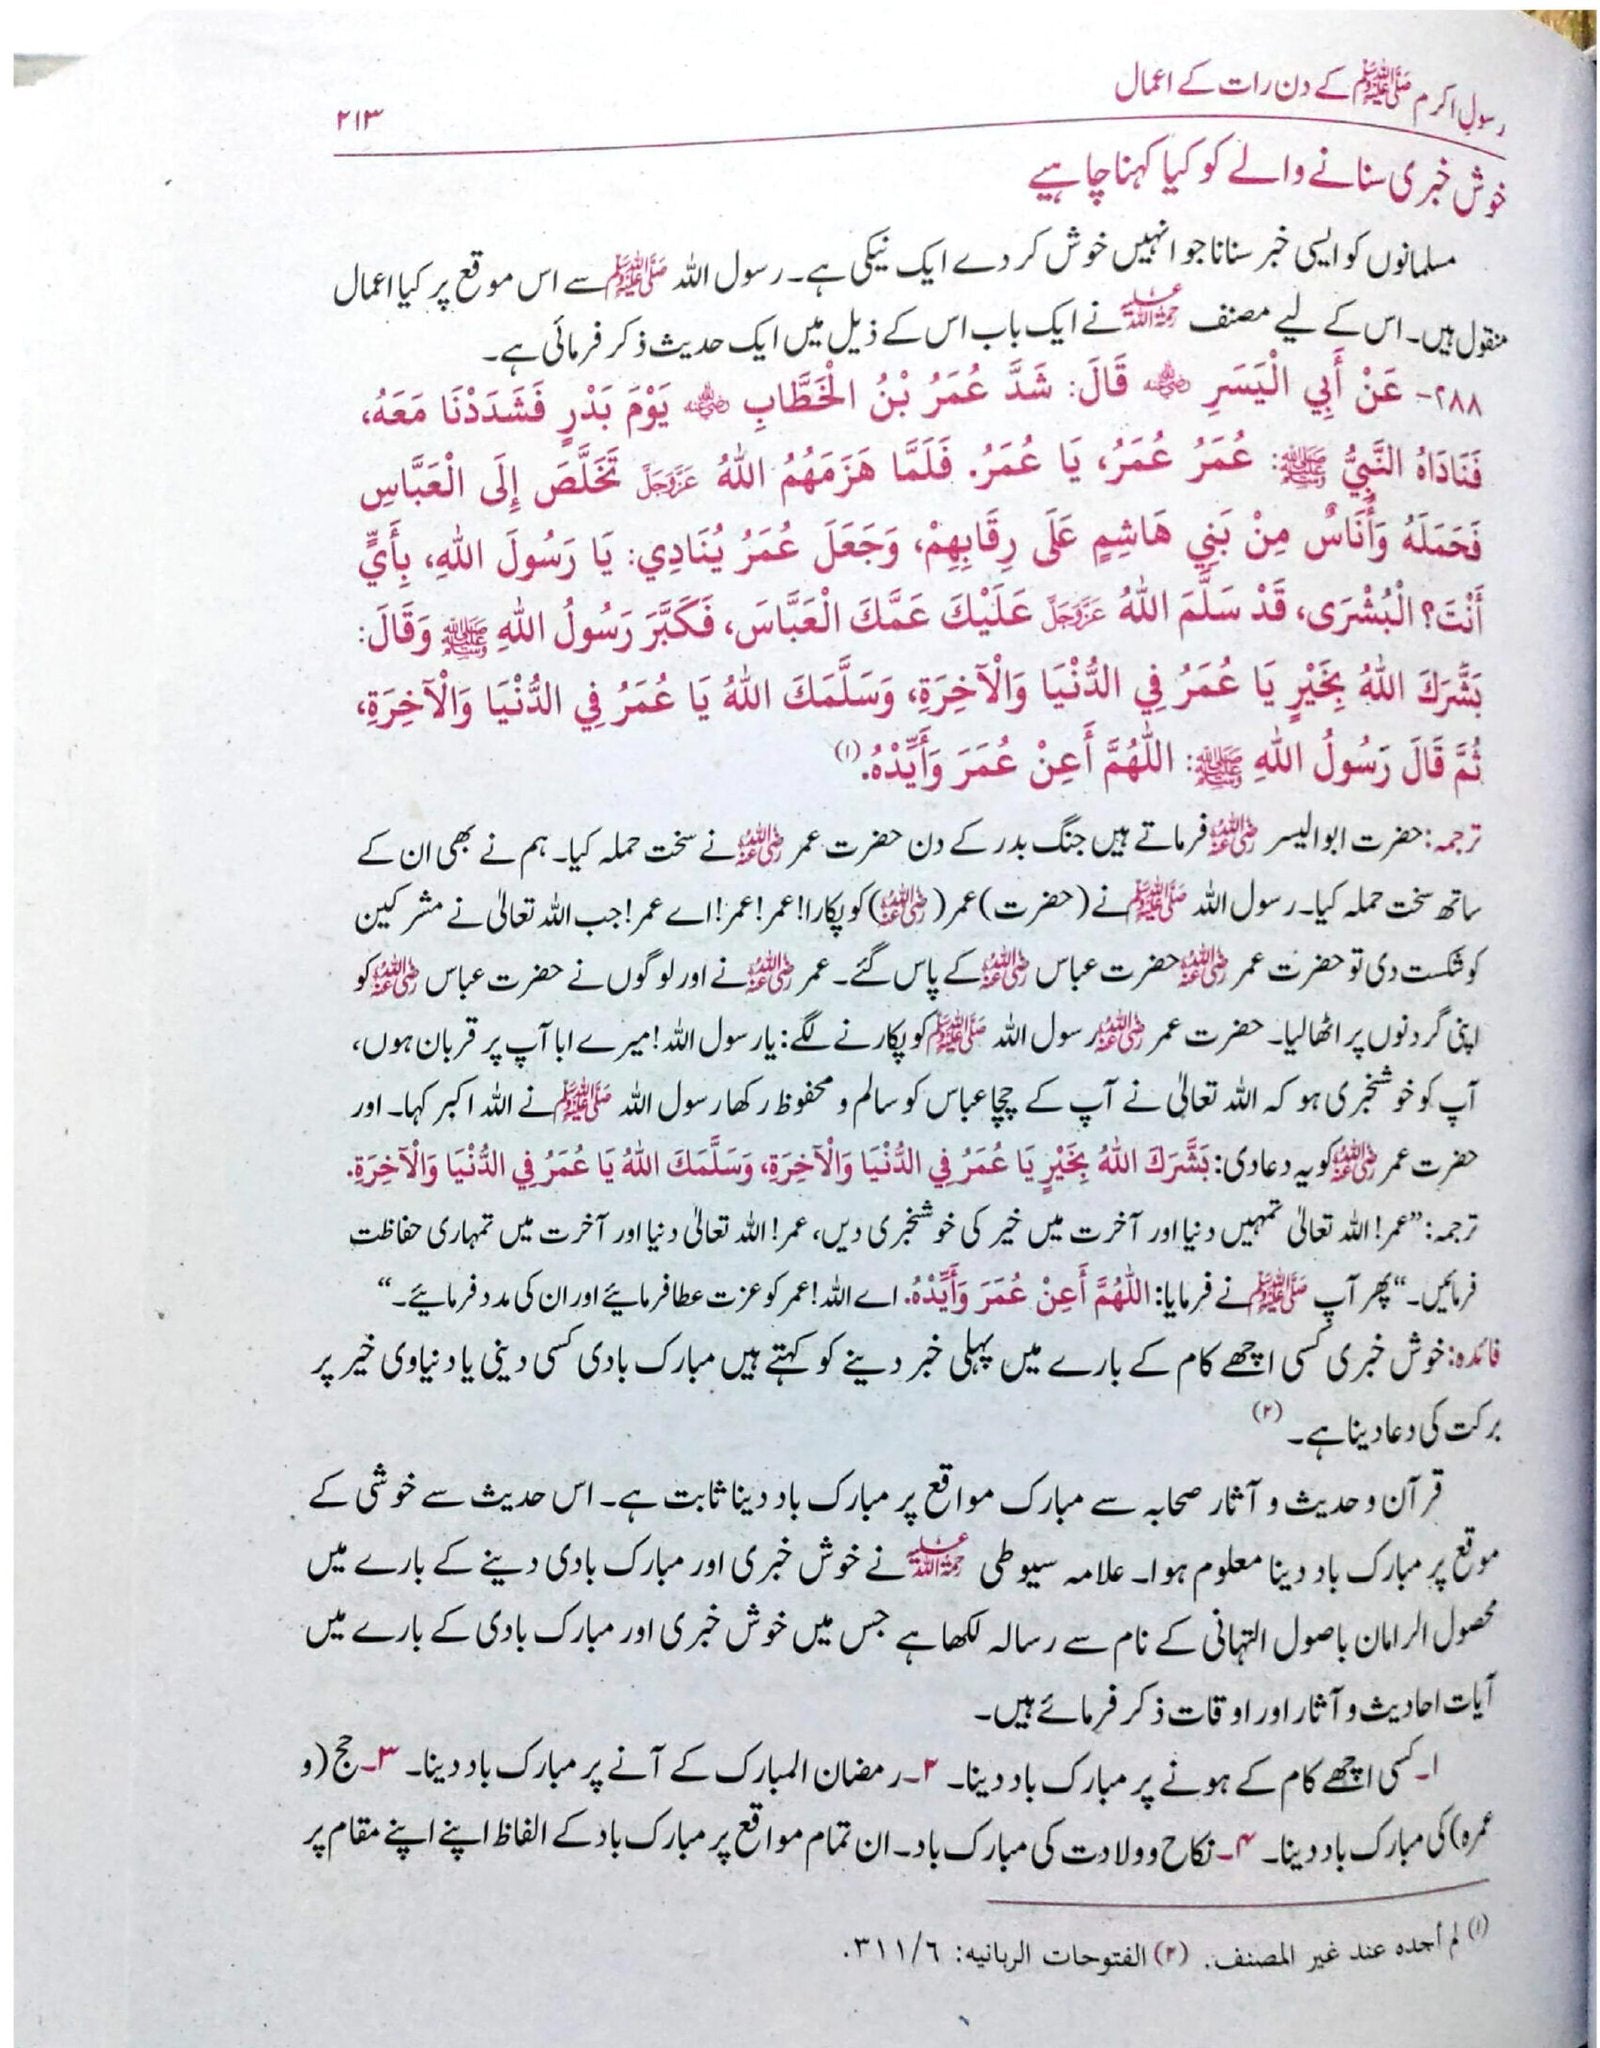 رسول اکرم ﷺ کے دن رات کے اعمال
۲۱۳
خوش خبری سنانے والے کو کیا کہنا چاہیے
مسلمانوں کو ایسی خبر سنانا جو انہیں خوش کر دے ایک نیکی ہے۔ رسول اللہ ﷺ سے اس موقع پر کیا اعمال
منقول ہیں۔ اس کے لیے مصنف رحمۃ اللہ علیہ نے ایک باب اس کے ذیل میں ایک حدیث ذکر فرمائی ہے۔
۲۸۸- عَنْ أَبِي الْيَسَرِ رضي الله عنه قَالَ: شَدَّ عُمَرُ بْنُ الْخَطَّابِ رضي الله عنه يَوْمَ بَدْرٍ فَشَدَدْنَا مَعَهُ،
فَنَادَاهُ النَّبِيُّ ﷺ: عُمَرُ عُمَرُ، يَا عُمَرُ. فَلَمَّا هَزَمَهُمُ اللهُ عَزَّوَجَلَّ تَخَلَّصَ إِلَى الْعَبَّاسِ
فَحَمَلَهُ وَأُنَاسٌ مِنْ بَنِي هَاشِمٍ عَلَى رِقَابِهِمْ، وَجَعَلَ عُمَرُ يُنَادِي: يَا رَسُولَ اللهِ، بِأَبِي
أَنْتَ؟ الْبُشْرَى، قَدْ سَلَّمَ اللهُ عَزَّوَجَلَّ عَلَيْكَ عَمَّكَ الْعَبَّاسَ، فَكَبَّرَ رَسُولُ اللهِ ﷺ وَقَالَ:
بَشَّرَكَ اللهُ بِخَيْرٍ يَا عُمَرُ فِي الدُّنْيَا وَالْآخِرَةِ، وَسَلَّمَكَ اللهُ يَا عُمَرُ فِي الدُّنْيَا وَالْآخِرَةِ،
ثُمَّ قَالَ رَسُولُ اللهِ ﷺ: اللّٰهُمَّ أَعِنْ عُمَرَ وَأَيِّدْهُ.(۱)
ترجمہ: حضرت ابوالیسر رضی اللہ عنہ فرماتے ہیں جنگ بدر کے دن حضرت عمر رضی اللہ عنہ نے سخت حملہ کیا۔ ہم نے بھی ان کے
ساتھ سخت حملہ کیا۔ رسول اللہ ﷺ نے (حضرت) عمر (رضی اللہ عنہ) کو پکارا! عمر! عمر! اے عمر! جب اللہ تعالیٰ نے مشرکین
کو شکست دی تو حضرت عمر رضی اللہ عنہ حضرت عباس رضی اللہ عنہ کے پاس گئے۔ عمر رضی اللہ عنہ نے اور لوگوں نے حضرت عباس رضی اللہ عنہ کو
اپنی گردنوں پر اٹھا لیا۔ حضرت عمر رضی اللہ عنہ رسول اللہ ﷺ کو پکارنے لگے: یا رسول اللہ! میرے ابا آپ پر قربان ہوں،
آپ کو خوشخبری ہو کہ اللہ تعالیٰ نے آپ کے چچا عباس کو سالم و محفوظ رکھا رسول اللہ ﷺ نے اللہ اکبر کہا۔ اور
حضرت عمر رضی اللہ عنہ کو یہ دعا دی: بَشَّرَكَ اللهُ بِخَيْرٍ يَا عُمَرُ فِي الدُّنْيَا وَالْآخِرَةِ، وَسَلَّمَكَ اللهُ يَا عُمَرُ فِي الدُّنْيَا وَالْآخِرَةِ.
ترجمہ: ”عمر! اللہ تعالیٰ تمہیں دنیا اور آخرت میں خیر کی خوشخبری دیں، عمر! اللہ تعالیٰ دنیا اور آخرت میں تمہاری حفاظت
فرمائیں۔“ پھر آپ ﷺ نے فرمایا: اللّٰهُمَّ أَعِنْ عُمَرَ وَأَيِّدْهُ. اے اللہ! عمر کو عزت عطا فرمایئے اور ان کی مدد فرمایئے۔“
فائدہ: خوش خبری کسی اچھے کام کے بارے میں پہلی خبر دینے کو کہتے ہیں مبارک بادی کسی دینی یا دنیاوی خیر پر
برکت کی دعا دینا ہے۔ (۲)
قرآن و حدیث و آثار صحابہ سے مبارک مواقع پر مبارک باد دینا ثابت ہے۔ اس حدیث سے خوشی کے
موقع پر مبارک باد دینا معلوم ہوا۔ علامہ سیوطی رحمۃ اللہ علیہ نے خوش خبری اور مبارک بادی دینے کے بارے میں
محصول الرامان باصول التہانی کے نام سے رسالہ لکھا ہے جس میں خوش خبری اور مبارک بادی کے بارے میں
آیات احادیث و آثار اور اوقات ذکر فرمائے ہیں۔
۱۔ کسی اچھے کام کے ہونے پر مبارک باد دینا۔ ۲۔ رمضان المبارک کے آنے پر مبارک باد دینا۔ ۳۔ حج (و
عمرہ) کی مبارک باد دینا۔ ۴۔ نکاح و ولادت کی مبارک باد۔ ان تمام مواقع پر مبارک باد کے الفاظ اپنے اپنے مقام پر
(۱) لم أجده عند غير المصنف. (۲) الفتوحات الربانيه: ٣١١/٦.